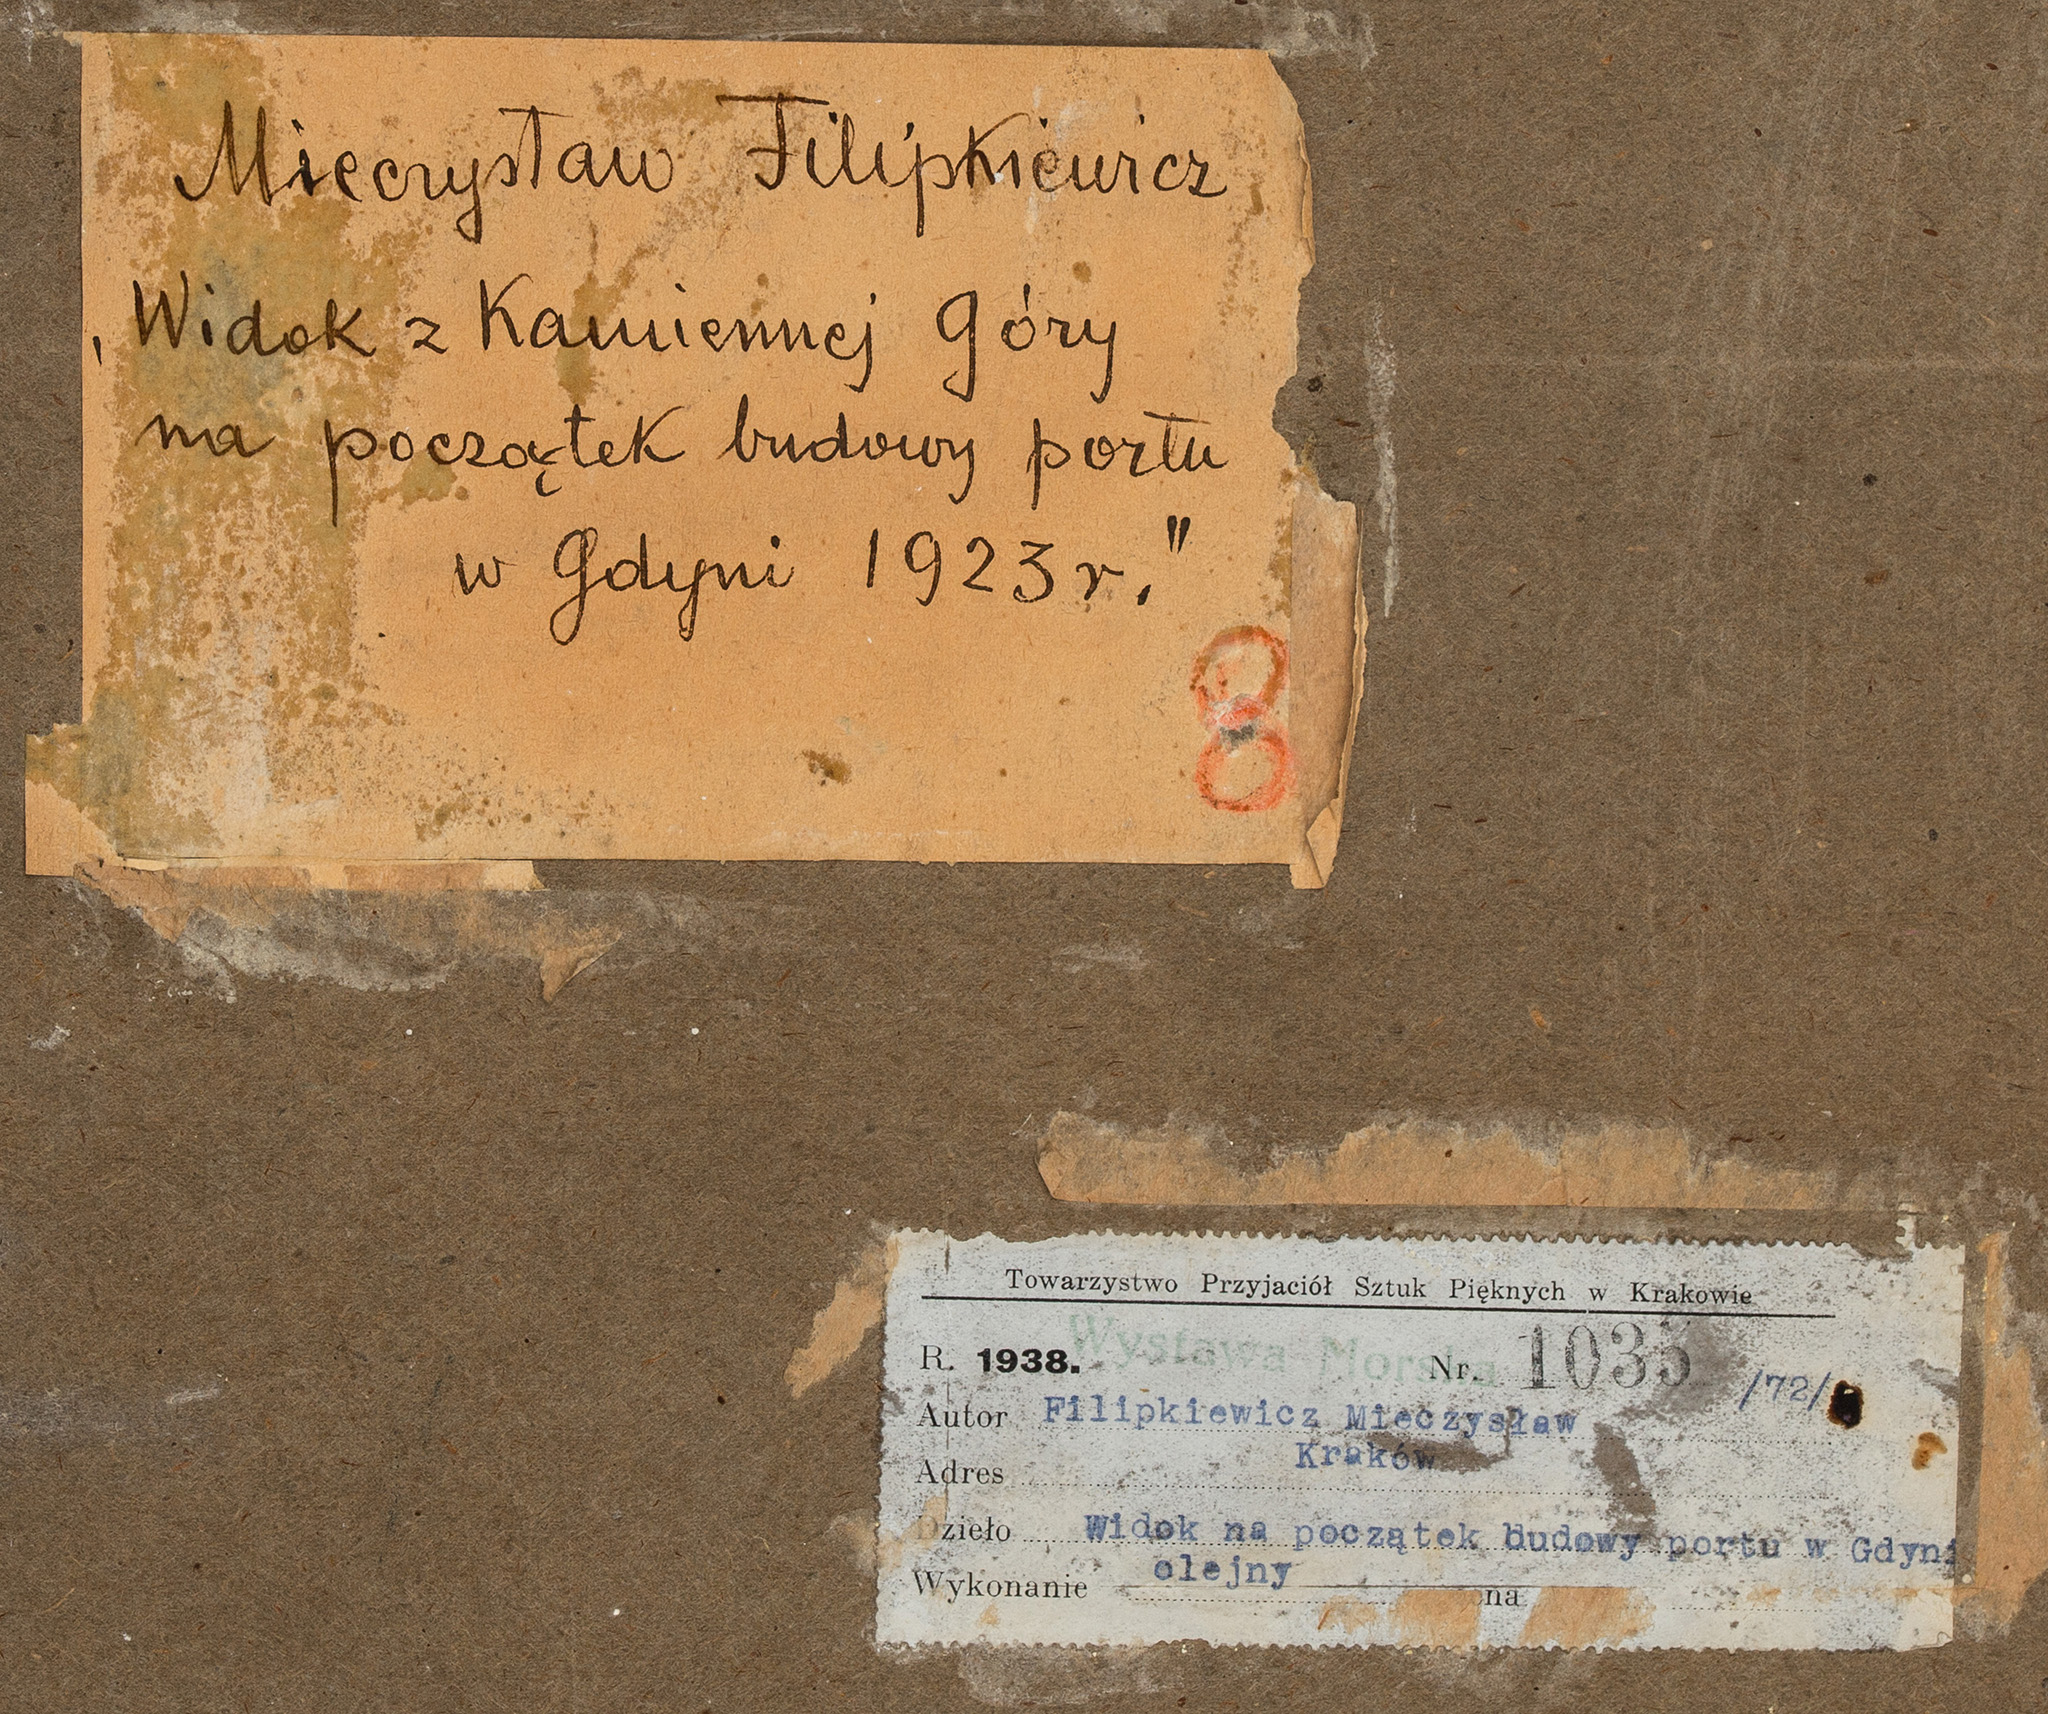 Mieczysław Filipkiewicz
„Widok z Kamiennej Góry
na początek budowy portu
w Gdyni 1923 r."
8
Towarzystwo Przyjaciół Sztuk Pięknych w Krakowie
Wystawa Morska
R. 1938. Nr. 1035 /72/
Autor Filipkiewicz Mieczysław
Kraków
Adres
Dzieło Widok na początek budowy portu w Gdyni
olejny
Wykonanie na